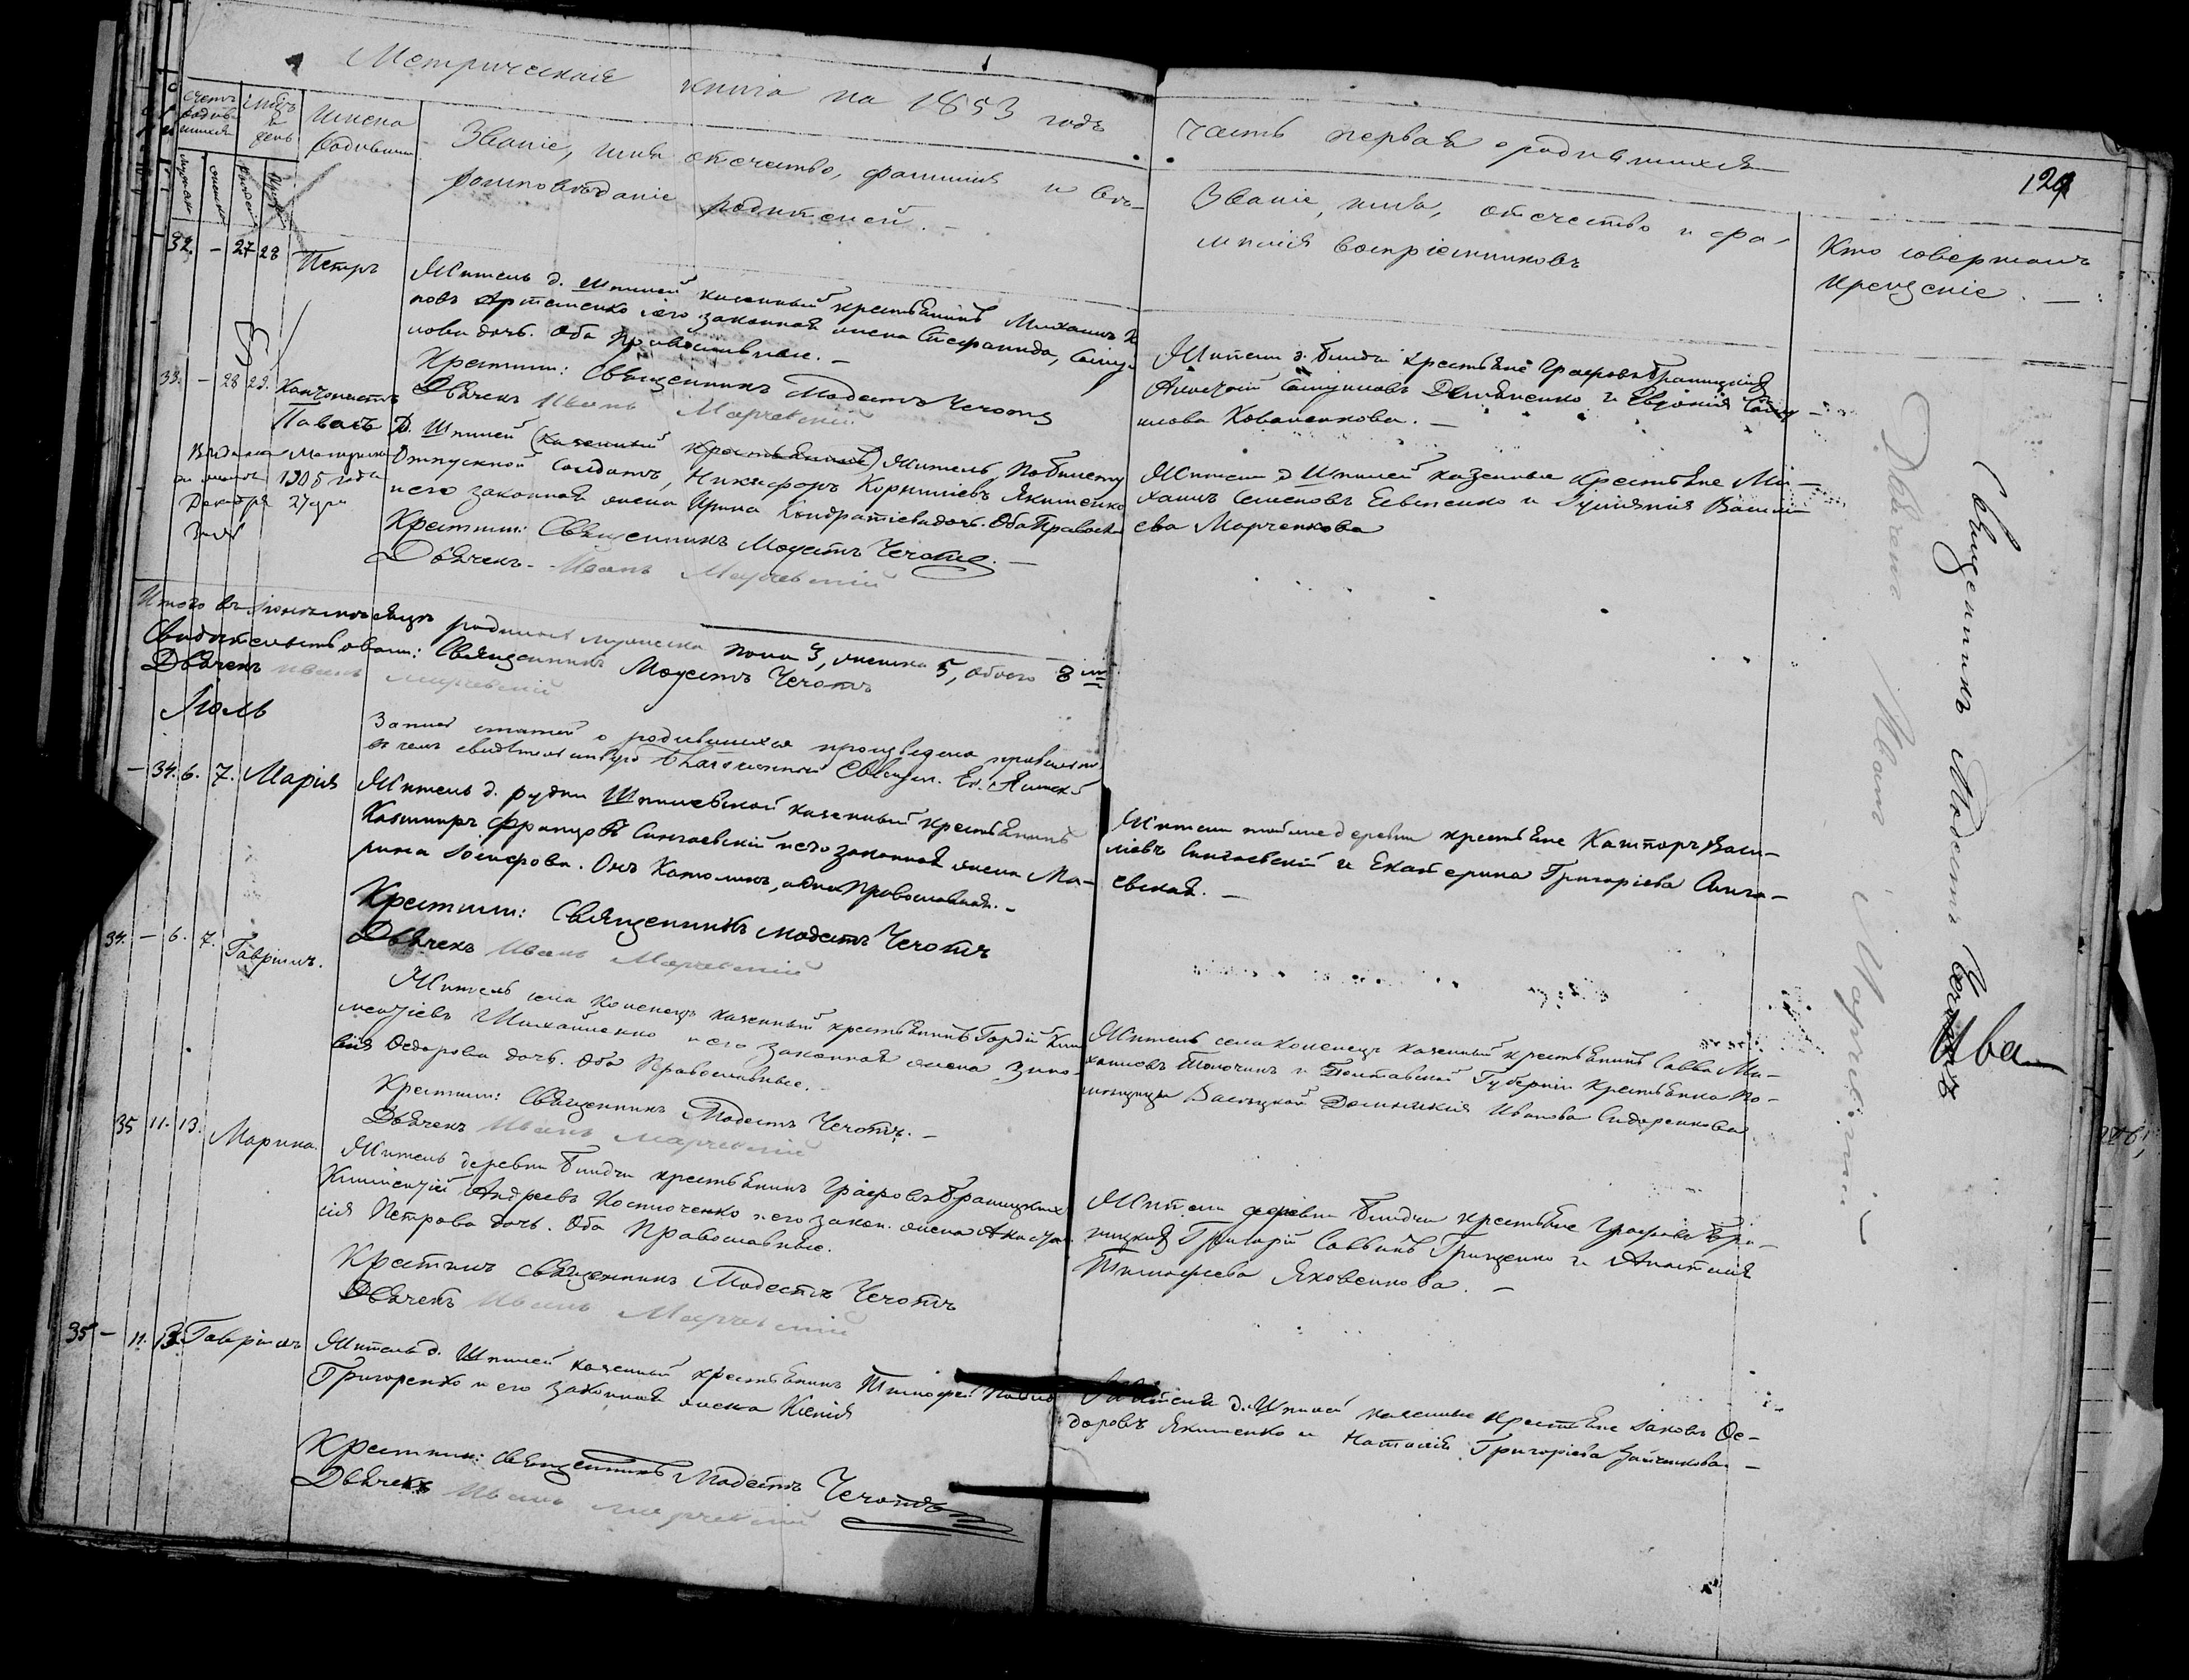 Метрическая книга на 1853 годъ
часть первая о родившихся
129
счетъ родив-шихся
день
Имена родивших.
Званіе, имя отечество, фамилія и вѣ-
роисповѣданіе родителей. —
Званіе, имя, отечество и фа-
милія воспріемниковъ
Кто совершалъ
крещеніе. —
32. — 27 28 Петръ
Житель д. Шпилей казенный крестьянинъ Михаилъ
новъ Артеменко и его законная жена Стефанида,
лова дочь. Оба православные. —
Крестили: Священникъ Модестъ Чечотъ
Дьячекъ Иванъ Марчевскій
Жители д. Блидчи крестьяне Графовъ Браницкихъ
Алексѣй Самуиловъ Демьяненко и Евдокія
илова Коваленкова. —
33. — 28 29.
Павелъ
1905 года
Декабря 27 дня
Д. Шпилей (казенный крестьянинъ) житель, по билету
Отпускной солдатъ, Никифоръ Корниліевъ Якименко
и его законная жена Ирина Кондратіева дочь. Оба Правосл.
Крестили: Священникъ Модестъ Чечотъ. —
Дьячекъ - Иванъ Марчевскій
Жители д Шпилей казенные крестьяне Ми-
хаилъ Семеновъ Евтенко и Васили-
ева Марченкова
родилось мужеска пола 3, женска 5, обоего 8
Свидѣтельствовали: Священникъ Модестъ Чечотъ
Дьячекъ Иванъ Марчевскій
Іюль
Запись статей о родившихся произведена правильно
въ чемъ свидѣтельствуетъ Благочинный Священ.
— 34. 6. 7. Марія
Житель д. рудни Шпилевской казенный крестьянинъ
Казимиръ Францовъ Сингаевскій и его законная жена Ма-
рина Іосифова. Онъ Католикъ, а она Православная. —
Крестили: Священникъ Модестъ Чечотъ
Дьячекъ Иванъ Марчевскій
Жители той же деревни крестьяне Васи-
ліевъ Сингаевскій и Екатерина Григоріева Синга-
евская. —
34. — 6. 7. Гавріилъ.
Житель села Коленецъ казенный крестьянинъ Гордій Кли-
ментіевъ Михайленко и его законная жена Зино-
вія Ѳедорова дочь. Оба Православные. —
Крестили: Священникъ Модестъ Чечотъ. —
Дьячекъ Иванъ Марчевскій
Житель села Коленецъ казенный крестьянинъ Савва Ми-
хаиловъ Толочинъ и Полтавской Губерніи крестьянка По-
мѣщицы Иванова Сидоренкова
35 11. 13. Марина.
Житель деревни Блидчи крестьянинъ Графовъ Браницкихъ
Климентій Андреевъ Костюченко и его закон. жена
Петрова дочь. Оба Православные.
Крестилъ Священникъ Модестъ Чечотъ
Дьячекъ Иванъ Марчевскій
Жители деревни Блидчи крестьяне Графовъ Бра-
ницкихъ Григорій Саввинъ Грищенко и Анастасія
Тимофеева Яковенкова. —
35 — 11. 13. Гавріилъ
Житель д. Шпилей казенный крестьянинъ Тимофей
Григоренко и его законная жена Ксенія
Крестили: Священникъ Модестъ Чечотъ
Дьячекъ Иванъ Марчевскій
Жители д. Шпилей казенные крестьяне Іаковъ Ѳе-
доровъ Якименко и Наталія Григоріева Зайченкова —
Священникъ Модестъ Чечотъ
Дьячекъ Иванъ Марчевскій
Ива